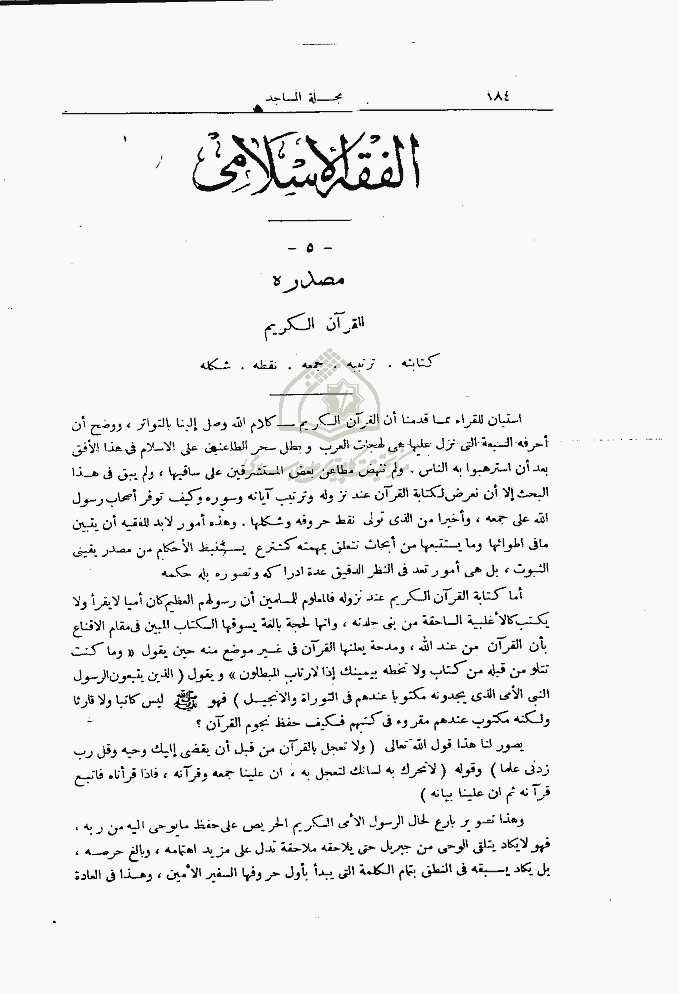 ١٨٤
مجلة المساجد
الفقه الإسلامى
- ٥ -
مصدره
القرآن الكريم
كتابته . ترتيبه . جمعه . نقطه . شكله
استبان للقراء مما قدمنا أن القرآن الكريم — كلام الله وصل إلينا بالتواتر ، ووضح أن
أحرفه السبعة التى نزل عليها هى لهجات العرب وبطل سحر الطاعنين على الاسلام فى هذا الأفق
بعد أن استرهبوا به الناس . ولم تنهض مطاعن بعض المستشرقين على ساقيها ، ولم يبق فى هذا
البحث إلا أن نعرض لكتابة القرآن عند نزوله وترتيب آياته وسوره وكيف توفر أصحاب رسول
الله على جمعه ، وأخيرا من الذى تولى نقط حروفه وشكلها . وهذه أمور لابد للفقيه أن يتبين
مافى اطوائها وما يستتبعها من أبحاث تتعلق بمهمته كمشترع يستنبط الأحكام من مصدر يقينى
الثبوت ، بل هى أمور تعد فى النظر الدقيق عدة ادراكه وتصوره بله حكمه
أما كتابة القرآن الكريم عند نزوله فالمعلوم للمسلمين أن رسولهم العظيم كان أميا لايقرأ ولا
يكتب كالأغلبية الساحقة من بنى جلدته ، وانها لحجة بالغة يسوقها الكتاب المبين فى مقام الاقناع
بأن القرآن من عند الله ، ومدحة يعلنها القرآن فى غير موضع منه حين يقول « وما كنت
تتلو من قبله من كتاب ولا تخطه بيمينك إذا لارتاب المبطلون » ويقول ( الذين يتبعون الرسول
النبى الأمى الذى يجدونه مكتوبا عندهم فى التوراة والانجيل ) فهو ﷺ ليس كاتبا ولا قارئا
ولكنه مكتوب عندهم مقروء فى كتبهم فكيف حفظ نجوم القرآن ؟
يصور لنا هذا قول الله تعالى ( ولا تعجل بالقرآن من قبل أن يقضى إليك وحيه وقل رب
زدنى علما ) وقوله ( لاتحرك به لسانك لتعجل به ، ان علينا جمعه وقرآنه ، فاذا قرأناه فاتبع
قرآنه ثم ان علينا بيانه )
وهذا تصوير بارع لحال الرسول الأمى الكريم الحريص على حفظ مايوحى اليه من ربه ،
فهو لايكاد يتلقى الوحى من جبريل حتى يلاحقه ملاحقة تدل على مزيد اهتمامه ، وبالغ حرصه ،
بل يكاد يسبقه فى النطق بتمام الكلمة التى يبدأ بأول حروفها السفير الأمين ، وهذا فى العادة